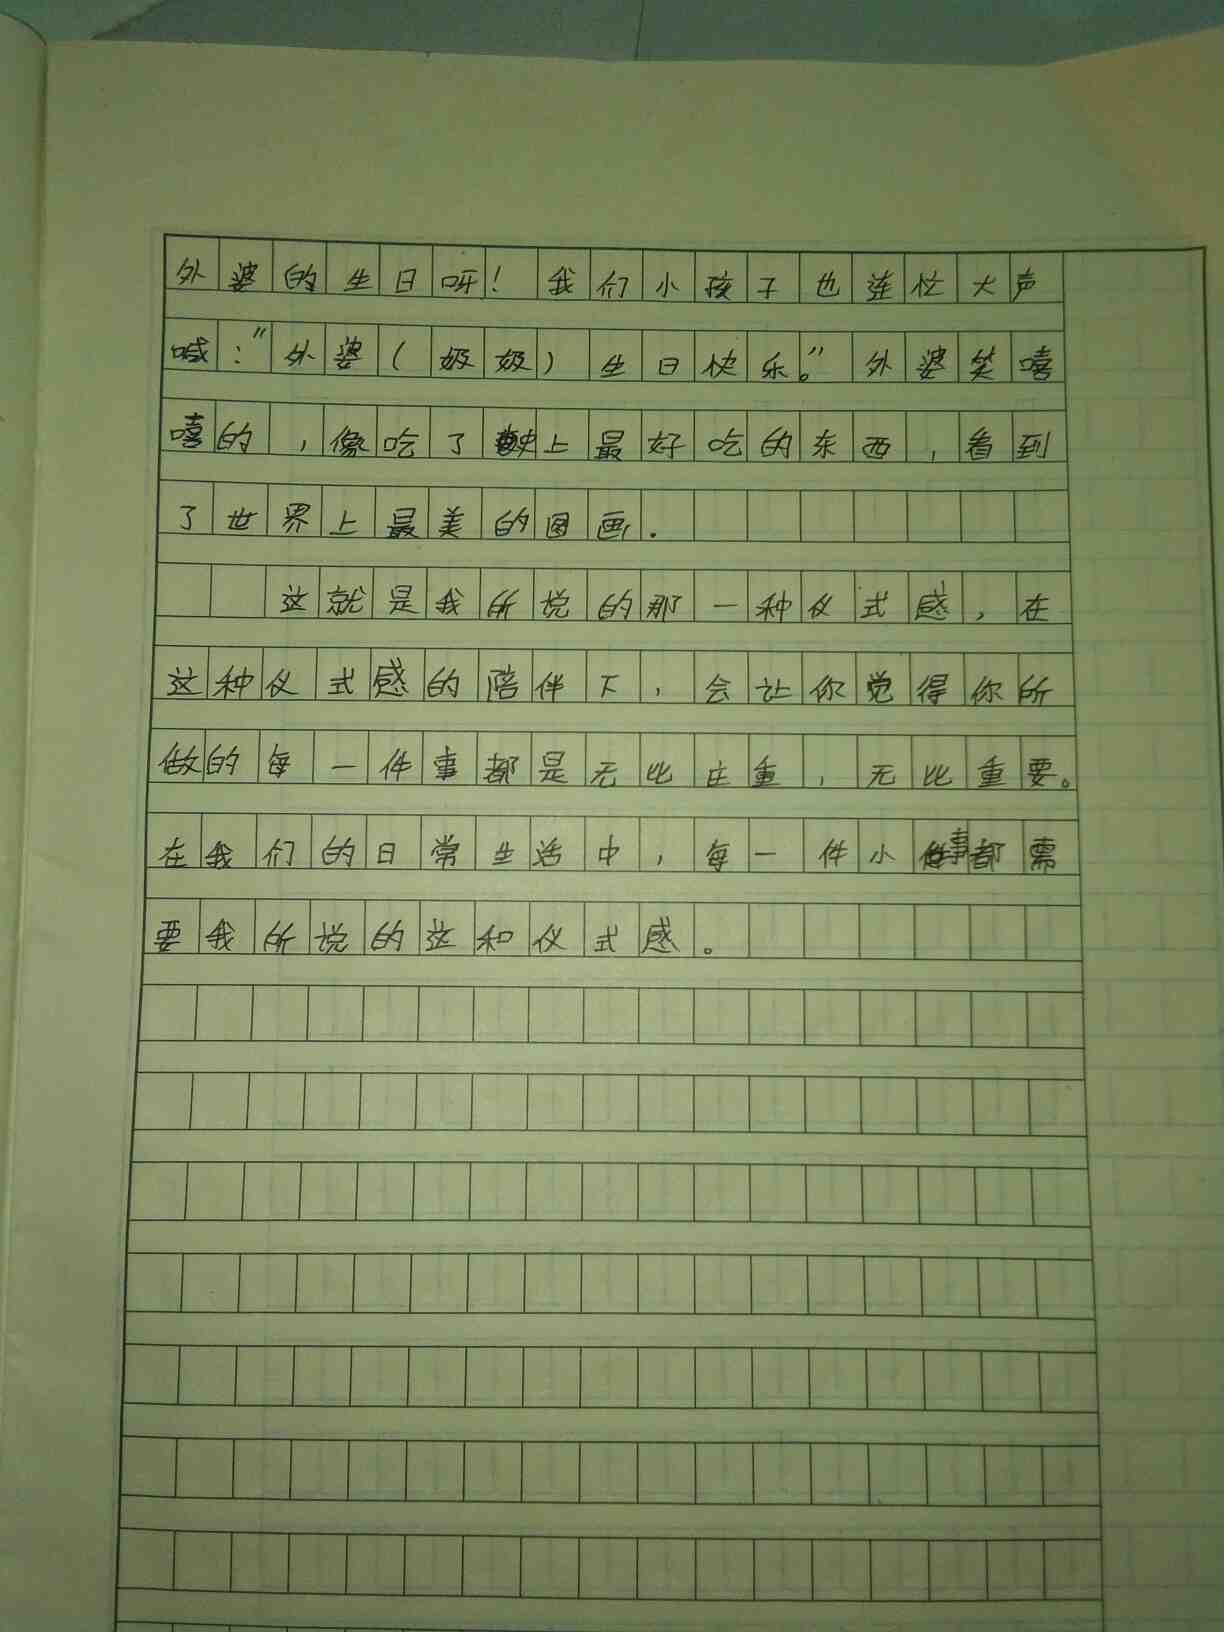 外婆的生日呀！我们小孩子也连忙大声
喊：“外婆（奶奶）生日快乐。”外婆笑嘻
嘻的，像吃了史上最好吃的东西，看到
了世界上最美的图画.
这就是我所说的那一种仪式感，在
这种仪式感的陪伴下，会让你觉得你所
做的每一件事都是无比庄重，无比重要。
在我们的日常生活中，每一件小事都需
要我所说的这和仪式感。